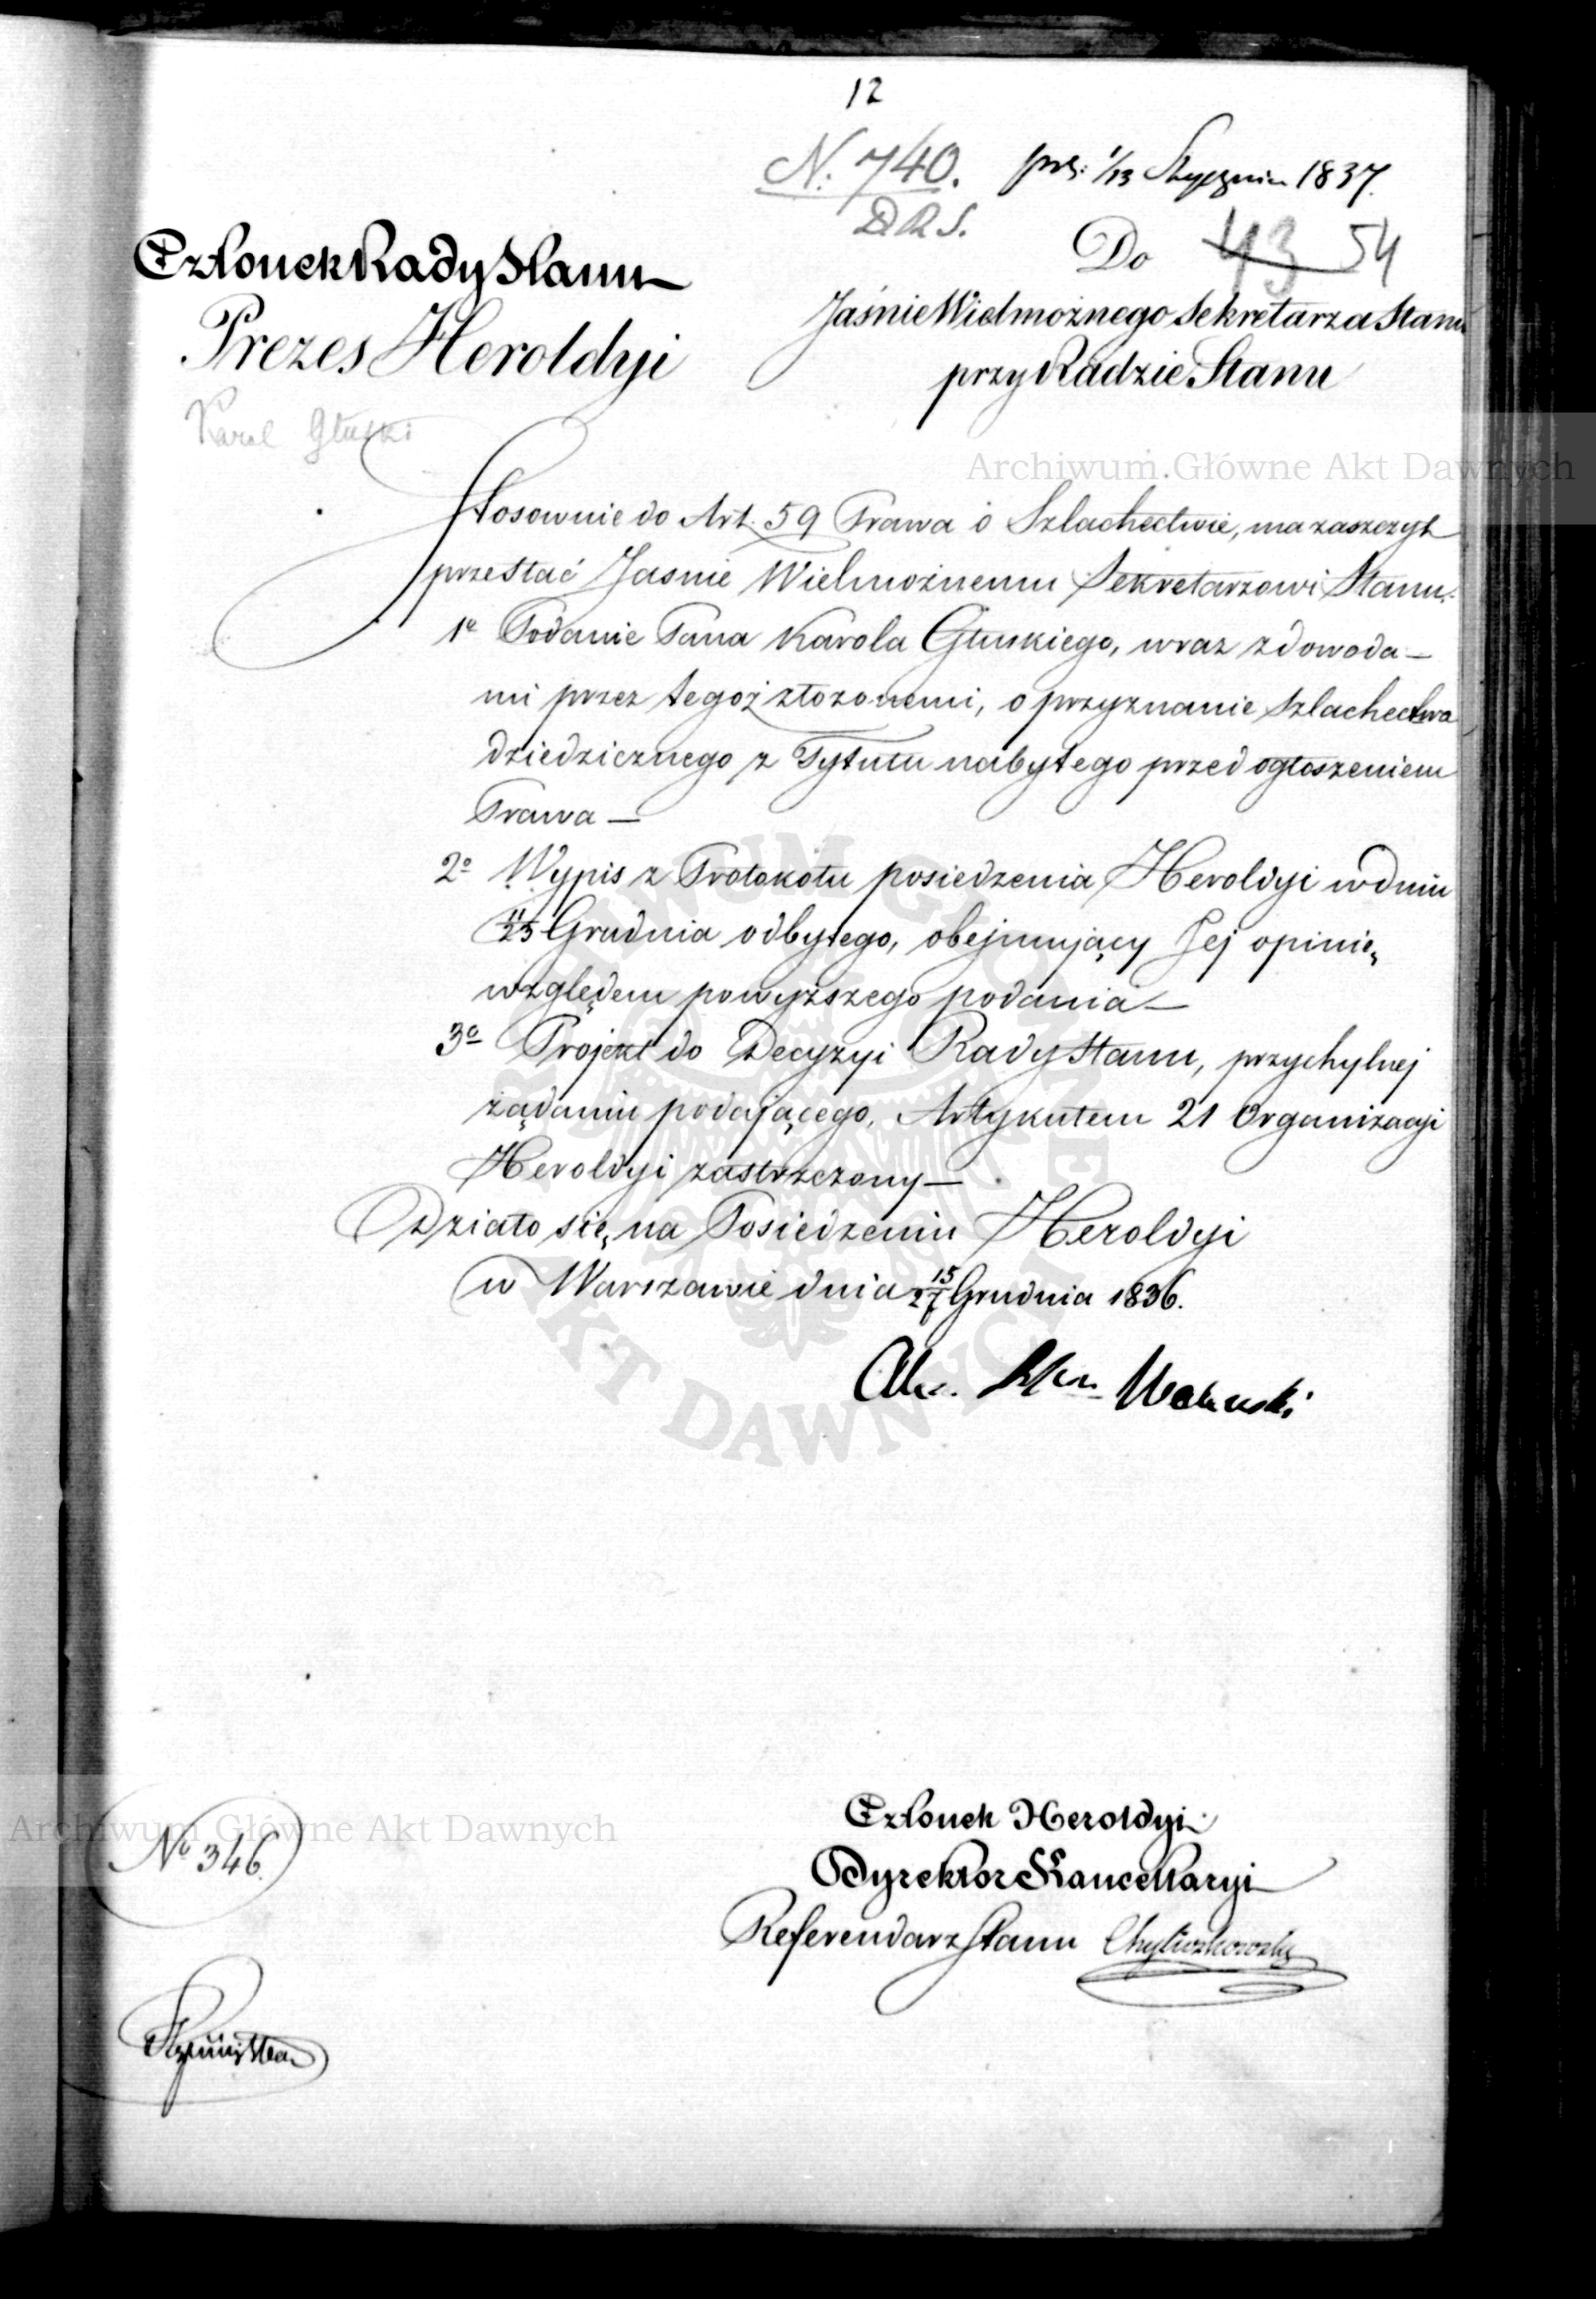 12
N. 740. prz: 1/13 Stycznia 1837.
D.R.S.
Członek Rady Stanu
Prezes Heroldyi
Karol Głuski
Do 43 54
Jaśnie Wielmożnego Sekretarza Stanu
przy Radzie Stanu
Stosownie do Art. 59 Prawa o Szlachectwie, ma zaszczyt
przesłać Jasnie Wielmożnemu Sekretarzowi Stanu.
1º Podanie Pana Karola Głuskiego, wraz z dowoda-
mi przez tegoż złożonemi, o przyznanie szlachectwa
dziedzicznego z Tytułu nabytego przed ogłoszeniem
Prawa —
2º Wypis z Protokołu posiedzenia Heroldyi w dniu
11/23 Grudnia odbytego, obejmujący Jej opinię
względem powyższego podania —
3º Projekt do Decyzyi Rady Stanu, przychylnej
żądaniu podającego, Artykułem 21 Organizacyi
Heroldyi zastrzeżony —
Działo się na Posiedzeniu Heroldyi
w Warszawie dnia 15/27 Grudnia 1836.
Walewski
Członek Heroldyi
Dyrektor Kancellaryi
Referendarz Stanu Chyliczkowski
Nº 346.
Archiwum Główne Akt Dawnych
Archiwum Główne Akt Dawnych
ARCHIWUM GŁÓWNE AKT DAWNYCH